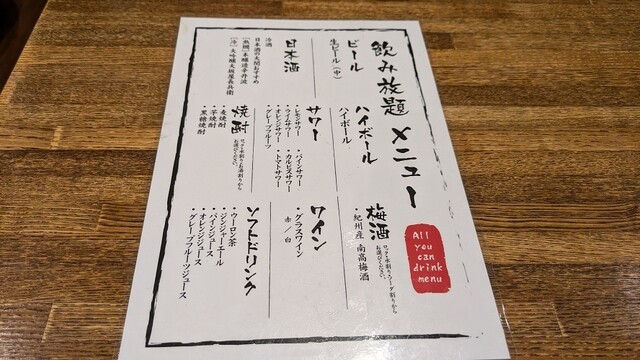 飲み放題 メニュー
All
you
can
drink
menu
ビール
生ビール（中）
ハイボール
ハイボール
梅酒
ロック・水割り・ソーダ割りから
お選びください。
・紀州産 南高梅酒
日本酒
冷酒
日本酒の大関おすすめ
〔熱燗〕本醸造辛丹波
〔冷〕大吟醸大坂屋長兵衛
サワー
・レモンサワー
・ライムサワー
・オレンジサワー
・グレープフルーツ
・パインサワー
・カルピスサワー
・トマトサワー
ワイン
・グラスワイン
赤／白
焼酎
ロック・水割り・お湯割りから
お選びください。
・麦焼酎
・芋焼酎
・黒糖焼酎
ソフトドリンク
・ウーロン茶
・ジンジャーエール
・パインジュース
・オレンジジュース
・グレープフルーツジュース